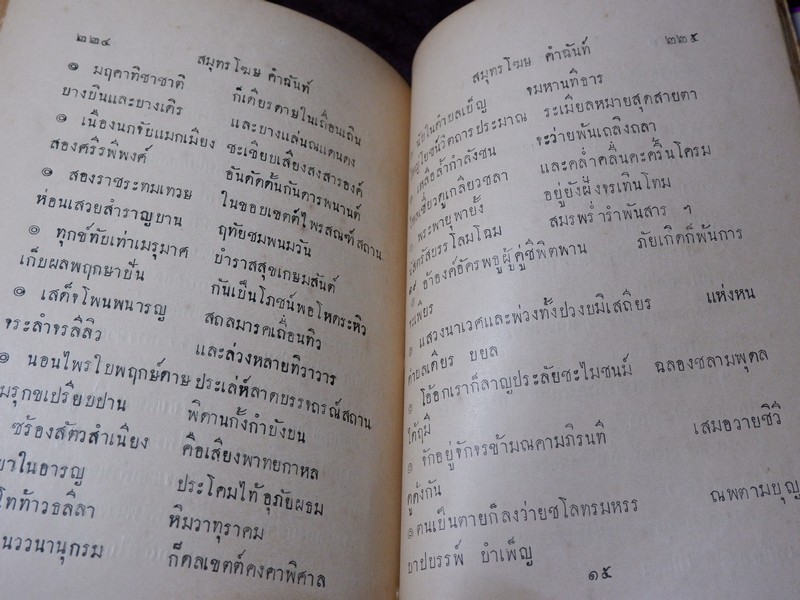 ๒๒๔
สมุทรโฆษ คำฉันท์
๏ มฤคาทิชาชาติ ก็เดียรดาษในเถื่อนเถิน
บางยืนและบางเดิร และบางแล่นณแดนดง
๏ เนื่องนกจับแมกเมียง ชะเซียบเสียงสงสารองค์
สองศรีรพิพงศ์ อันดัดดั้นกันดารพนานต์
๏ สองราชระทมเทวษ ในขอบเขตต์ไพรสณฑ์สถาน
ห่อนเสวยสำราญบาน ฤทัยชมพนมวัน
๏ ทุกข์ทับเท่าเมรุมาศ บำราสสุขเกษมสันต์
เก็บผลพฤกษาปัน กันเป็นโภชน์พอโหดระหิว
๏ เสด็จโพนพนารญ สถลมารคเถื่อนทิว
จระลำจรลีลิว และล่วงหลายทิวาวาร
๏ นอนไพรใบพฤกษ์ดาษ ประเล่ห์ลาดบรรจถรณ์สถาน
มรุกขเปรียบปาน พิดานกั้งกำบังบน
ชร้องสัตว์สำเนียง คือเสียงพาทยกาหล
ยาในอารญ ประโคมไท้อุภัยผธม
โทท้าวธลิลา หิมวาทุราคม
นววนานุกรม ก็ดลเขตต์คงคาพิศาล
สมุทรโฆษ คำฉันท์
๒๒๕
นัยในค่าบลเบ็ญ จมหานทีธาร
โยชน์วิตถารประมาณ ระเมียลหมายสุดสายตา
เหลือล้ำกำลังชน จะว่ายพ้นเถลิงถลา
เชี่ยวดูเกลียวชลา และคล่ำคลื่นคะครื้นโครม
๏ พระพายุพายั้ง อยู่ยังฝั่งจรเทินโทม
รัสยรรโลมโฉม สมรพร่ำรำพันสาร ฯ
๑๙ อ้าองค์อัครพธูผู้คู่ชีพิตพาน ภัยเกิดก็พันการ
๏ แสวงนาเวศและพ่วงทั้งปวงบมิเสถียร แห่งหน
ตำบลเดียร บยล
๏ โอ้อกเราก็ลาญประลัยชะไมชนม์ ฉลองชลามพุดล
ใดฤมี
๏ จักอยู่จักจรข้ามณคามภิรนที เสมอวายชีวี
ดูดั่งกัน
๏ ตนเป็นตายก็ลงว่ายชโลทรมหรร ณพตามบุญ
บาปบรรพ์ บำเพ็ญ
๑๕